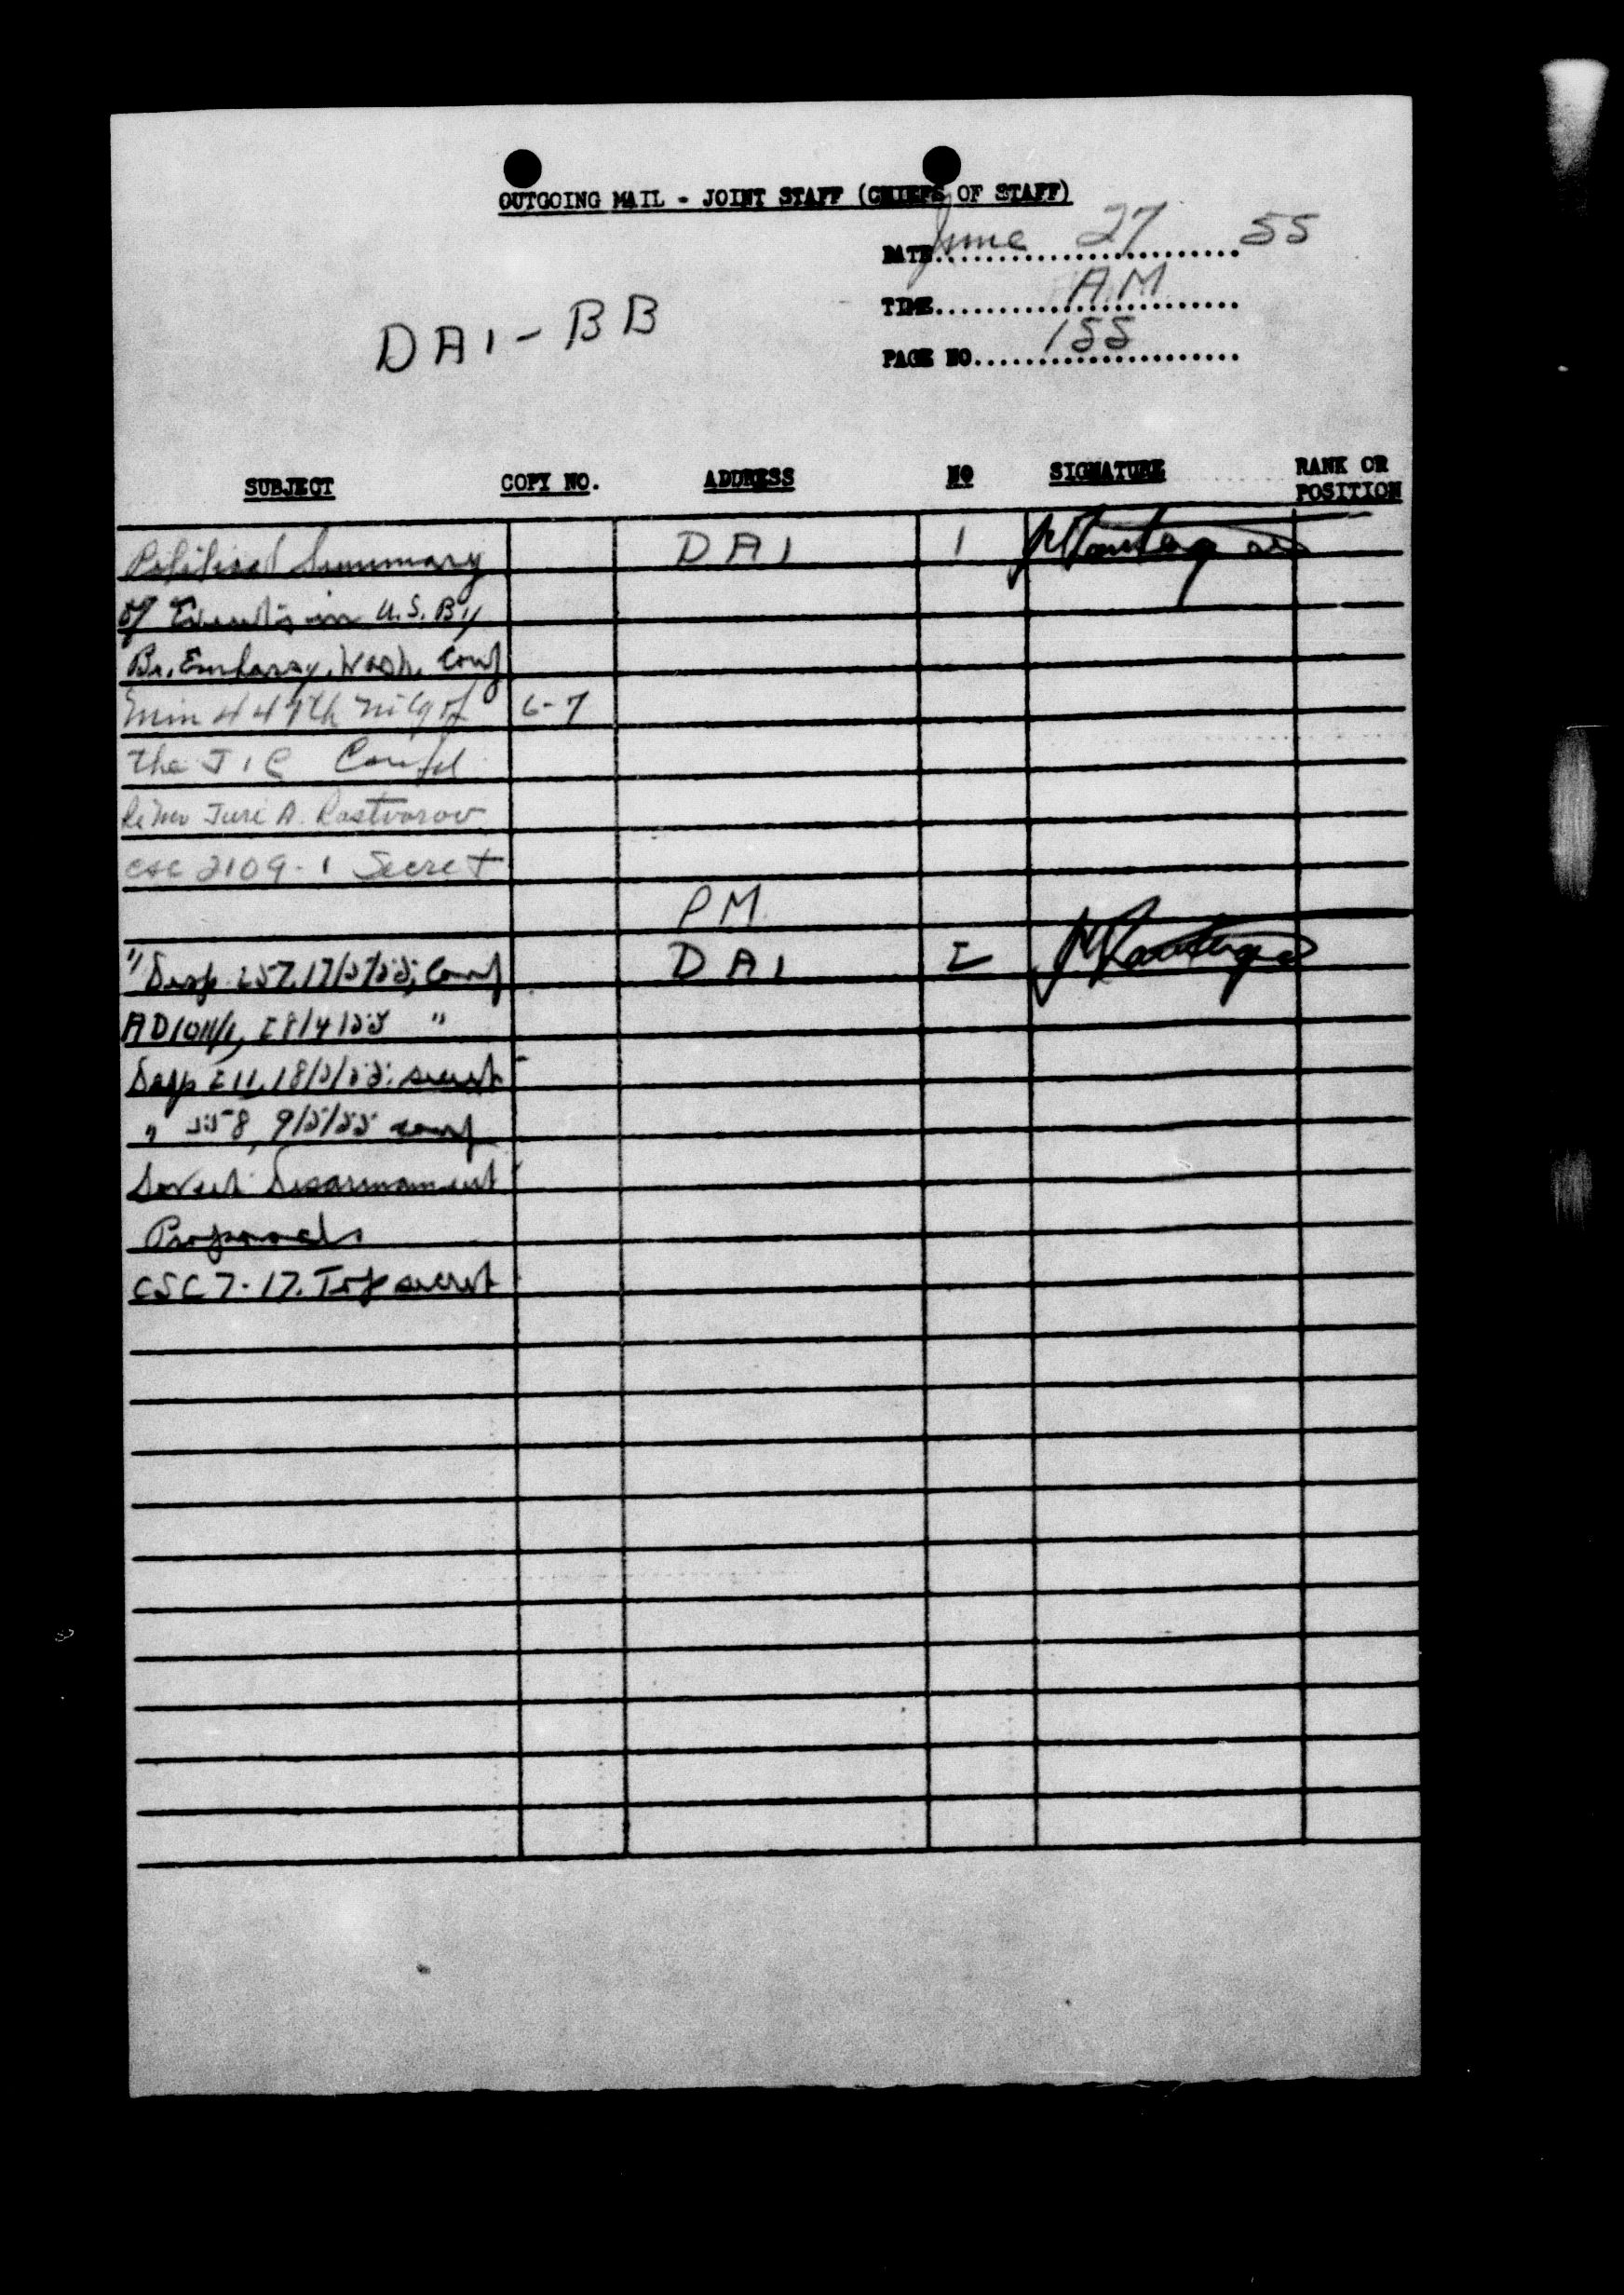 OUTGOING MAIL - JOINT STAFF (CHIEFS OF STAFF)
DATE June 27 55
TIME A.M
DAI-BB
PAGE NO 155
SUBJECT COPY NO. ADDRESS NO SIGNATURE RANK OR POSITION
Political Summary DAI 1
of Events in U.S. By
Br. Embassy, Wash. Conf
Min 449th Mtg of 6-7
the JIC Confd
Juri A. Rastvorov
CSC 2109-1 Secret
PM
Desp 257, 17/5/55, Conf DAI 2
AD1011/1, 28/4/55 "
Desp 211, 18/5/55. secret
" 9/5/55 conf
Soviet Disarmament
Proposals
CSC 7-17. Top secret